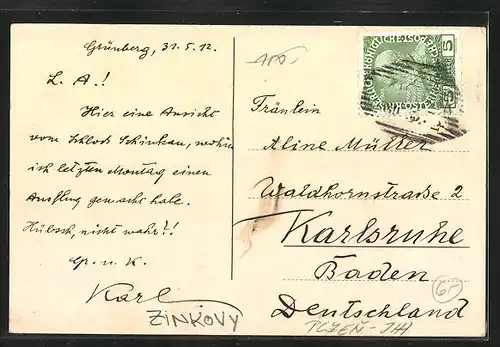 Grünberg, 31.5.12.
L. A.!
Hier eine Ansicht
vom Schloß Schinkau, wohin
ich letzten Montag einen
Ausflug gemacht habe.
Hübsch, nicht wahr?!
Gr. u. K.
Karl
ZINKOVY
Fräulein
Aline Müller
Waldhornstraße 2
Karlsruhe
Baden
Deutschland
65
5
5